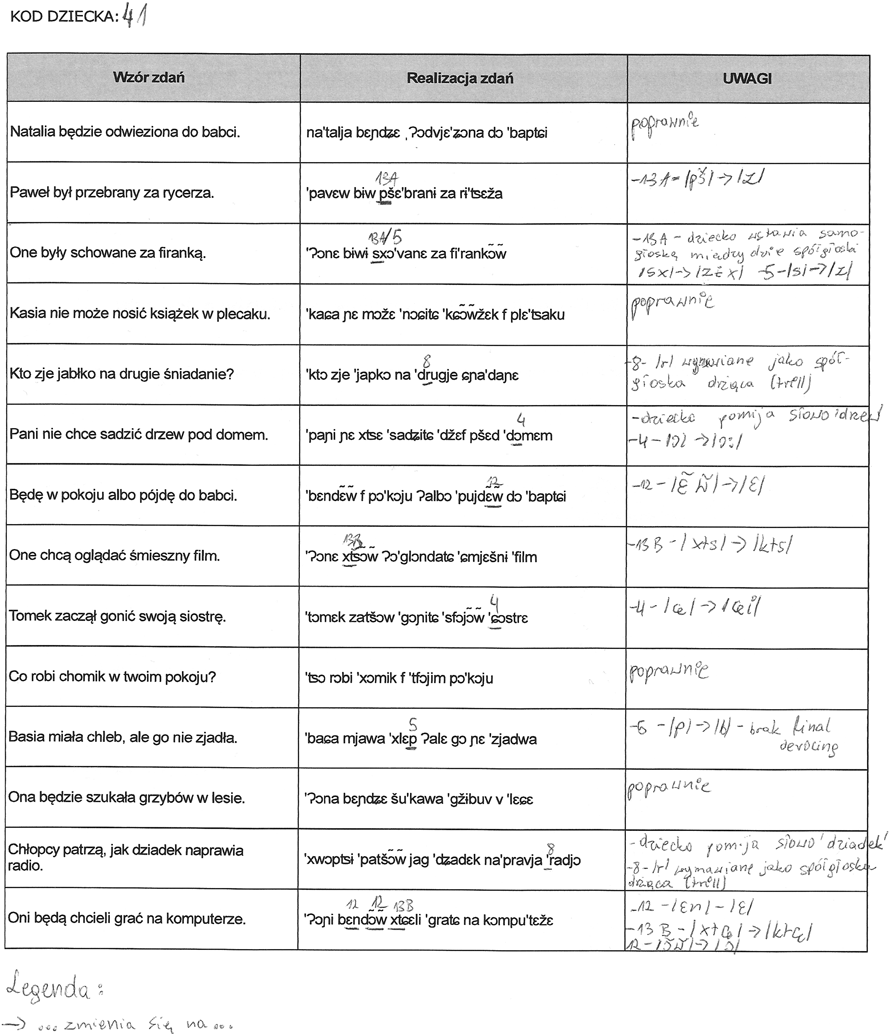 KOD DZIECKA: 41
Wzór zdań Realizacja zdań UWAGI
Natalia będzie odwieziona do babci. na'talja bɛɲdʑɛ ˌʔɔdvjɛ'ʑɔna dɔ 'baptɕi poprawnie
13A
Paweł był przebrany za rycerza. 'pavɛw biw pšɛ'brani za ri'tsɛža -13A- /pš/ → /z/
13A/5
One były schowane za firanką. 'ʔɔnɛ biwi sxɔ'vanɛ za fi'rankɔ̃w̃ -13A - dziecko wstawia samo-
głoskę między dwie spółgłoski
/sx/→/zɛx/ -5-/s/→/z/
Kasia nie może nosić książek w plecaku. 'kaɕa ɲɛ mɔžɛ 'nɔɕitɕ 'kɕɔ̃w̃žɛk f plɛ'tsaku poprawnie
8
Kto zje jabłko na drugie śniadanie? 'ktɔ zjɛ 'japkɔ na 'drugjɛ ɕɲa'daɲɛ -8- /r/ wymawiane jako spół-
głoska drżąca (trill)
4
Pani nie chce sadzić drzew pod domem. 'paɲi ɲɛ xtsɛ 'sadʑitɕ 'džɛf pšɛd 'dɔmɛm -dziecko pomija słowo 'drzew'
-4-/ɔ/ →/ɔ:/
12
Będę w pokoju albo pójdę do babci. 'bɛndɛ̃w̃ f pɔ'kɔju ʔalbɔ 'pujdɛ̃w̃ dɔ 'baptɕi -12-/ɛ̃ w̃/→/ɛ/
13B
One chcą oglądać śmieszny film. 'ʔɔnɛ xtsɔ̃w̃ ʔɔ'glɔndatɕ 'ɕmjɛšni 'film -13B-/xts/→/kts/
4
Tomek zaczął gonić swoją siostrę. 'tɔmɛk zatšɔw 'gɔɲitɕ 'sfɔjɔ̃w̃ 'ɕɔstrɛ
Co robi chomik w twoim pokoju? 'tsɔ rɔbi 'xɔmik f 'tfɔjim pɔ'kɔju poprawnie
5
Basia miała chleb, ale go nie zjadła. 'baɕa mjawa 'xlɛp ʔalɛ gɔ ɲɛ 'zjadwa -5-/p/→/b/ - brak final
devocing
Ona będzie szukała grzybów w lesie. 'ʔɔna bɛɲdʑɛ šu'kawa 'gžibuv v 'lɛɕɛ poprawnie
8
Chłopcy patrzą, jak dziadek naprawia
radio. 'xwɔptsi 'patšɔ̃w̃ jag 'dʑadɛk na'pravja 'radjɔ -dziecko pomija słowo 'dziadek'
-8-/r/ wymawiane jako spółgłoska
drżąca (trill)
12 12 13B
Oni będą chcieli grać na komputerze. 'ʔɔɲi bɛndɔ̃w̃ xtɕɛli 'gratɕ na kɔmpu'tɛžɛ -12-/ɛn/-/ɛ/
-13B-/xtɕ/→/ktɕ/
12-/ɔ̃w̃/→/ɔ/
Legenda:
→ ... zmienia się na ...